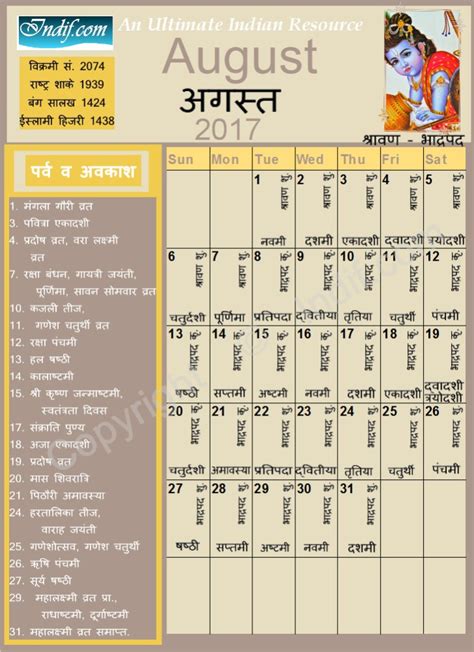 Indif.com
An Ultimate Indian Resource
August
अगस्त
2017
विक्रमी सं. 2074
राष्ट्र शाके 1939
बंग सालख 1424
ईस्लामी हिजरी 1438
श्रावण - भाद्रपद
पर्व व अवकाश
1. मंगला गौरी व्रत
3. पवित्रा एकादशी
4. प्रदोष व्रत, वरा लक्ष्मी
व्रत
7. रक्षा बंधन, गायत्री जयंती,
पूर्णिमा, सावन सोमवार व्रत
10. कजली तीज,
11. गणेश चतुर्थी व्रत
12. रक्षा पंचमी
13. हल षष्ठी
14. कालाष्टमी
15. श्री कृष्ण जन्माष्टमी,
स्वतंत्रता दिवस
17. संक्राति पुण्य
18. अजा एकादशी
19. प्रदोष व्रत
20. मास शिवरात्रि
21. पिठौरी अमावस्या
24. हरतालिका तीज,
वाराह जयंती
25. गणेशोत्सव, गणेश चतुर्थी
26. ऋषि पंचमी
27. सूर्य षष्ठी
29. महालक्ष्मी व्रत प्रा.,
राधाष्टमी, दूर्गाष्टमी
31. महालक्ष्मी व्रत समाप्त.
Sun Mon Tue Wed Thu Fri Sat
1 श्रावण शु 2 श्रावण शु 3 श्रावण शु 4 श्रावण शु 5 श्रावण शु
नवमी दशमी एकादशी द्वादशी त्रयोदशी
6 श्रावण शु 7 श्रावण शु 8 भाद्रपद कृ 9 भाद्रपद कृ 10 भाद्रपद कृ 11 भाद्रपद कृ 12 भाद्रपद कृ
चतुर्दशी पूर्णिमा प्रतिपदा द्वितीया तृतिया चतुर्थी पंचमी
13 भाद्रपद कृ 14 भाद्रपद कृ 15 भाद्रपद कृ 16 भाद्रपद कृ 17 भाद्रपद कृ 18 भाद्रपद कृ 19 भाद्रपद कृ
षष्ठी सप्तमी अष्टमी नवमी दशमी एकादशी द्वादशी
त्रयोदशी
20 भाद्रपद कृ 21 भाद्रपद कृ 22 भाद्रपद शु 23 भाद्रपद शु 24 भाद्रपद शु 25 भाद्रपद शु 26 भाद्रपद शु
चतुर्दशी अमावस्या प्रतिपदा द्वितीया तृतिया चतुर्थी पंचमी
27 भाद्रपद शु 28 भाद्रपद शु 29 भाद्रपद शु 30 भाद्रपद शु 31 भाद्रपद शु
षष्ठी सप्तमी अष्टमी नवमी दशमी